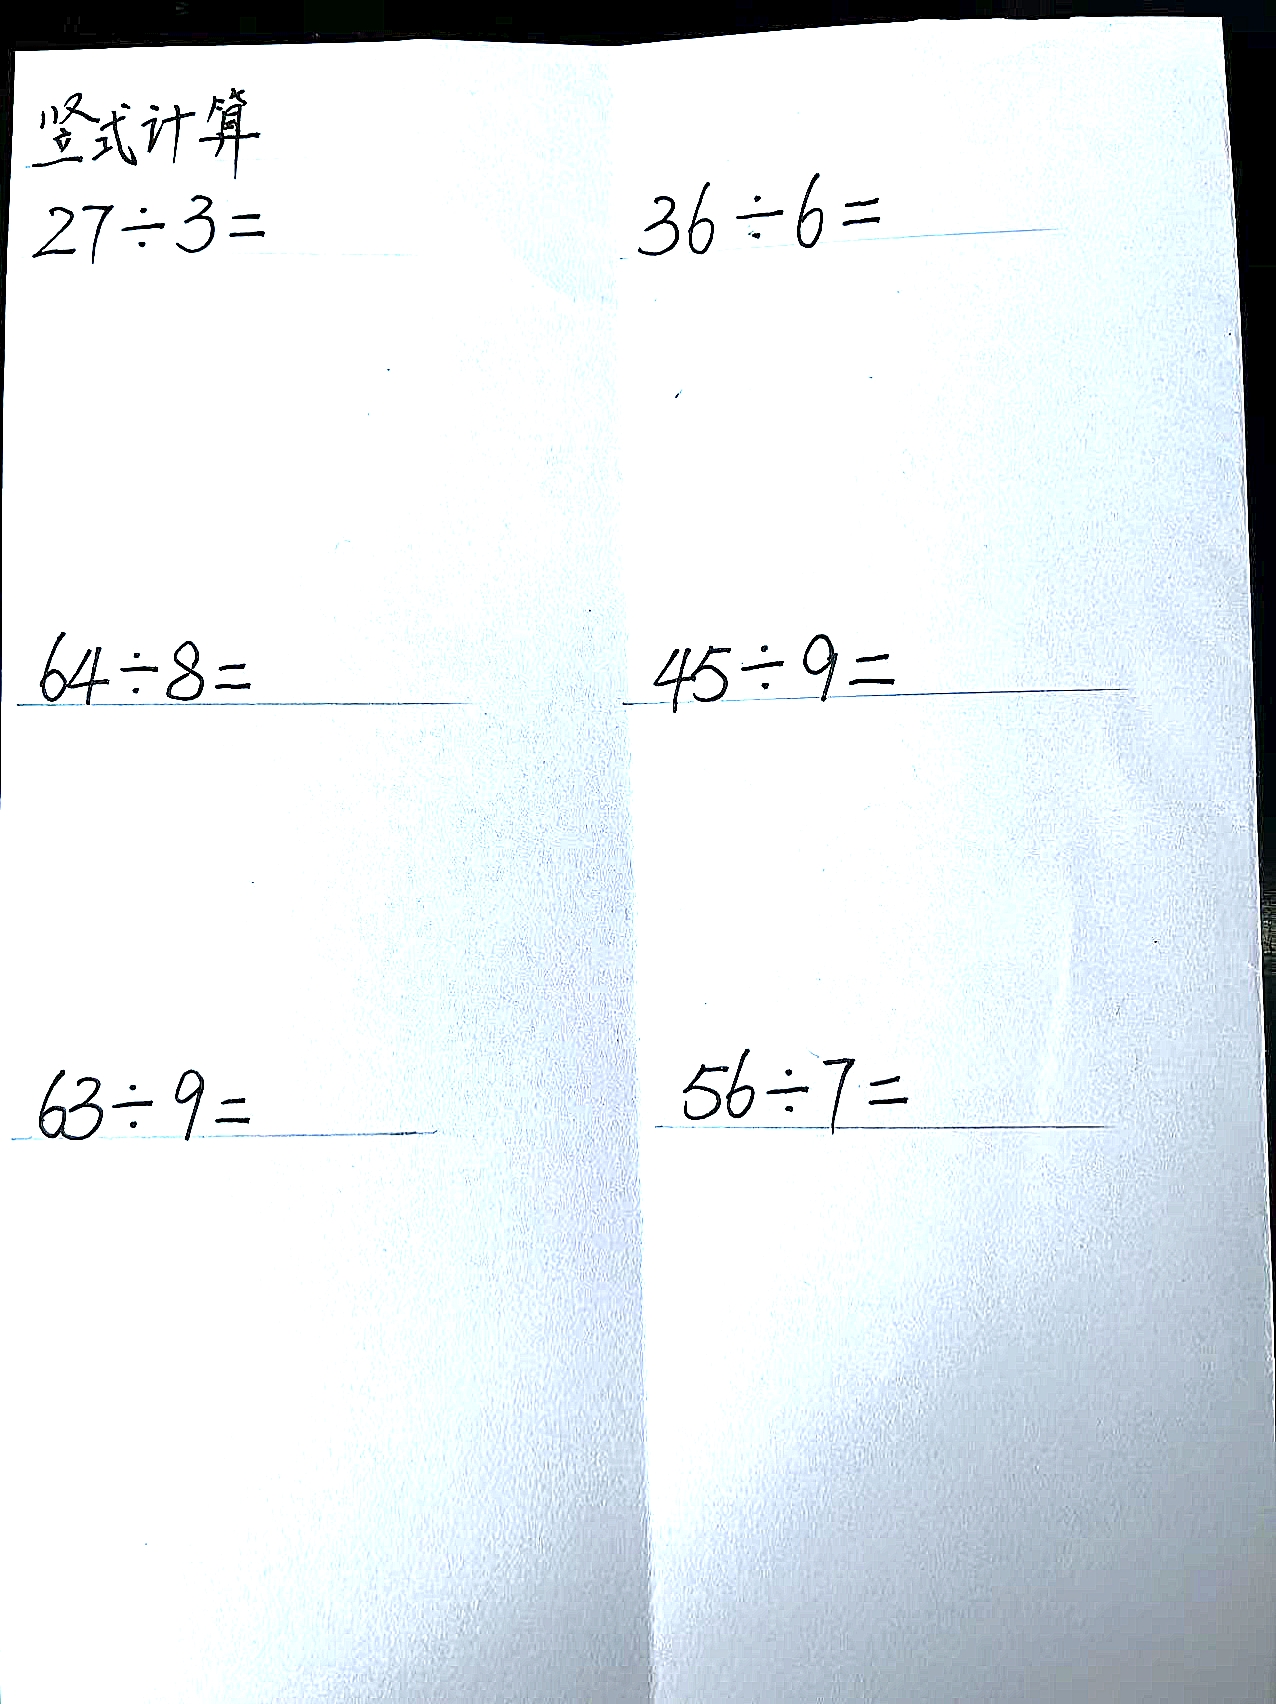 竖式计算
27÷3=
36÷6=
64÷8=
45÷9=
63÷9=
56÷7=